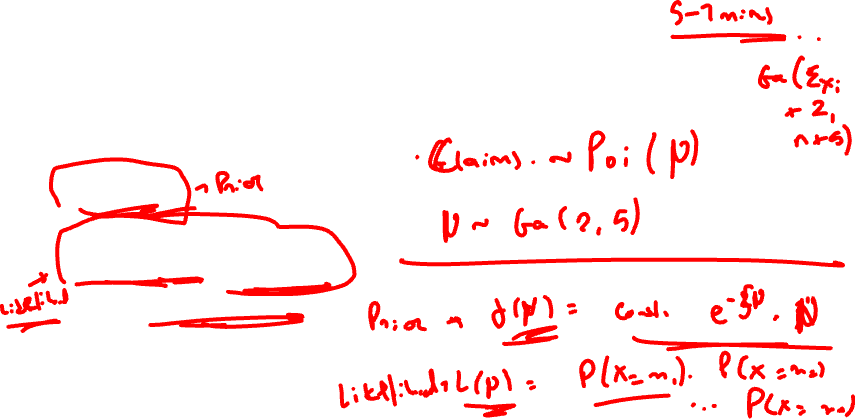 5-7 mins ..
Ga(Σxi
+ 2,
n+5)
. Claims. ~ Poi(μ)
→ Prior
μ ~ Ga(2, 5)
Likelihood
Prior → f(μ) = const. e^-5μ . μ
Likelihood → L(μ) = P(X=x1). P(X=x2)
... P(X=xn)